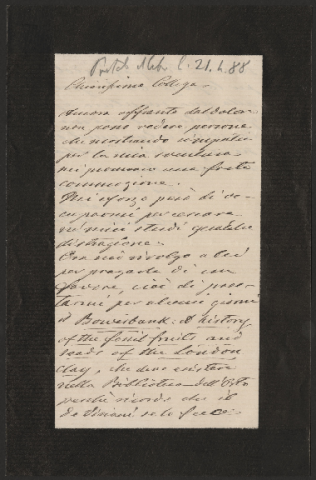 21. 4. 88
Chiarissimo Collega -
Ancora affranto dal dolore
non posso vedere persone
che mostrando simpatia
per la mia sventura
mi provocano una forte
commozione.
Mi sforzo però di oc-
cuparmi per cercare
nei miei studi qualche
distrazione.
Ora mi rivolgo a lei
per pregarla di un
favore, cioè di pres-
tarmi per alcuni giorni
il Bowerbank: A history
of the fossil fruits and
seeds of the London
clay, che deve esistere
nella Biblioteca dell'Orto
perchè ricordo che il
De Visiani se lo fece